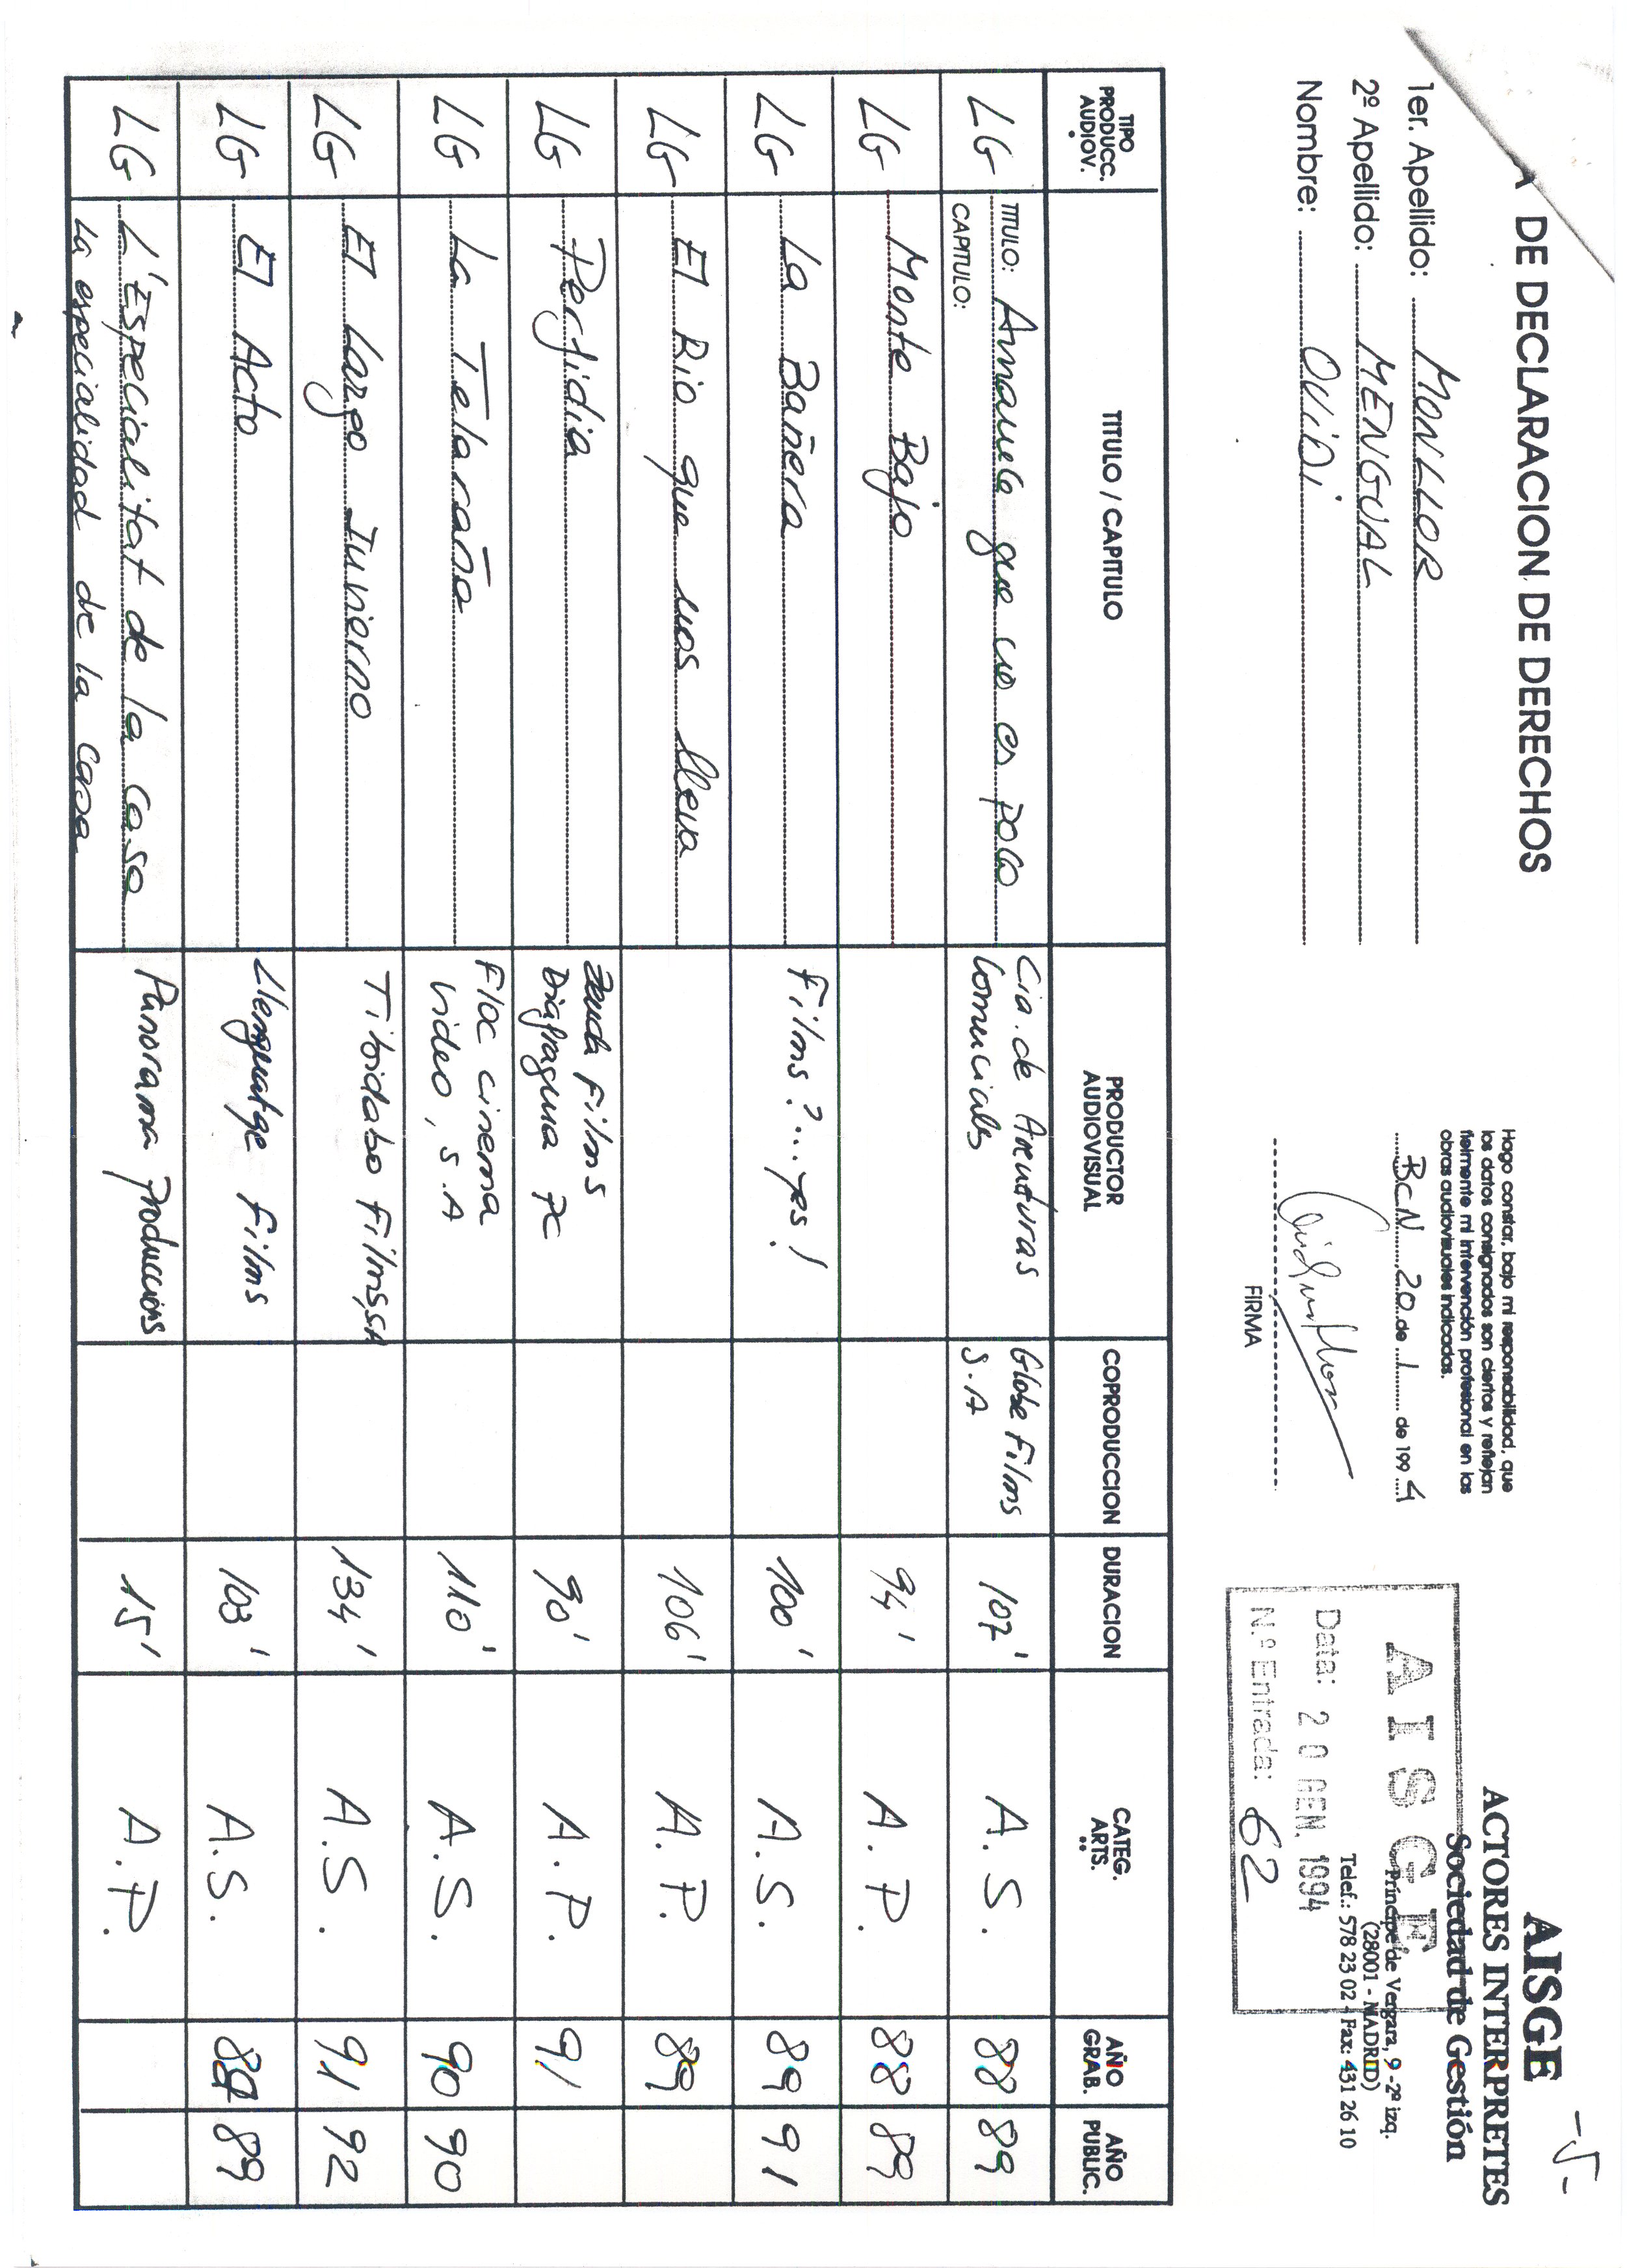 -5-
A DE DECLARACION DE DERECHOS
1er. Apellido: MONLLOR
2º Apellido: MENGUAL
Nombre: OVIDI
Hago constar, bajo mi responsabilidad, que
los datos consignados son ciertos y reflejan
fielmente mi intervención profesional en las
obras audiovisuales indicadas.
BCN 20 de 1 de 1994
FIRMA
AISGE
ACTORES INTERPRETES
Sociedad de Gestión
Príncipe de Vergara, 9 - 2º izq.
(28001 - MADRID)
Telef.: 578 23 02 - Fax: 431 26 10
AISGE
Data: 20 GEN. 1994
N.º Entrada: 62
TIPO PRODUCC. AUDIOV. TITULO / CAPITULO PRODUCTOR AUDIOVISUAL COPRODUCCION DURACION CATEG. ARTS. AÑO GRAB. AÑO PUBLIC.
LG TITULO: Amanece que no es poco Cia. de Aventuras Globe Films 102' A.S. 88 89
CAPITULO: Comerciales S.A
LG Monte Bajo 94' A.P. 88 89
LG La Bañera Films?...yes! 100' A.S. 89 91
LG El Rio que nos lleva 106' A.P. 89
LG Perfidia Zenda Films 90' A.P. 91
Diafragma PC
LG La Telaraña Floc cinema 110' A.S. 90 90
video, S.A
LG El Largo Invierno Tibidabo Films,SA 134' A.S. 91 92
LG El Acto Llenguatge Films 103' A.S. 89 89
LG L'Especialitat de la casa Panorama Produccions 15' A.P.
La especialidad de la casa